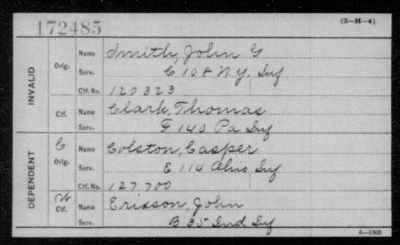 172485
(3-H-4)
INVALID
Orig. Name Smith, John G
Serv. C 108 N.Y. Inf
Ctf. No. 120323
Ctf. Name Clark, Thomas
Serv. F 140 Pa Inf
DEPENDENT
C Orig. Name Colston, Casper
Serv. E 114 Ohio Inf
Ctf. No. 127700
W Ctf. Name Ericson, John
Serv. B 35 Ind Inf